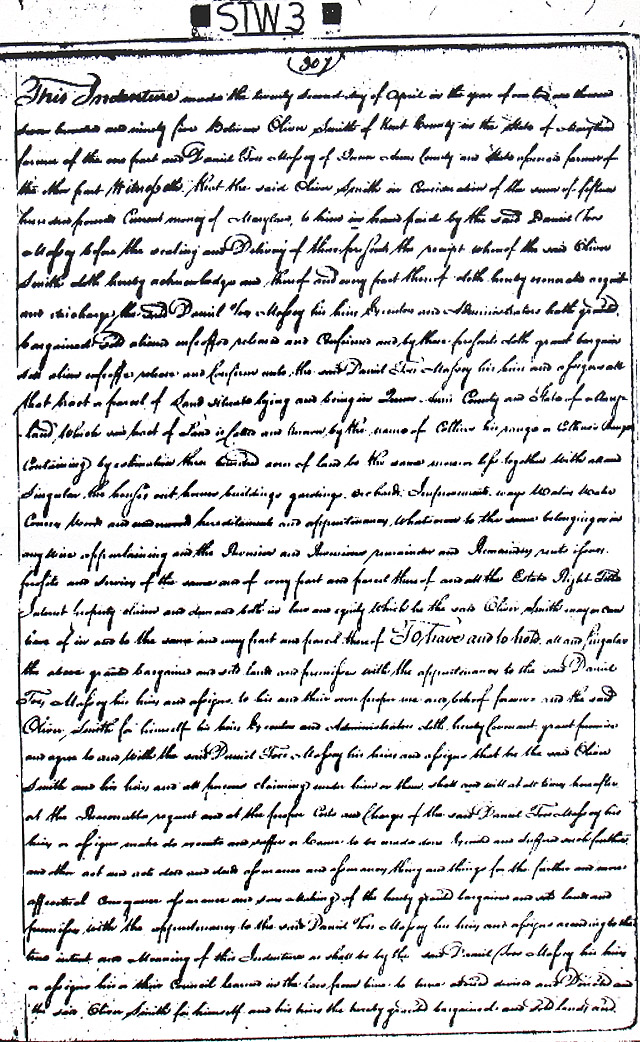 STW 3
307
This Indenture made the twenty second day of April in the year of our Lord one thousand
seven hundred and ninety five Between Oliver Smith of Kent County in the State of Maryland
farmer of the one part and Daniel Toas Massey of Queen Anns County and State aforesaid farmer of
the other part Witnesseth, that the said Oliver Smith in Consideration of the sum of fifteen
hundred pounds Current money of Maryland, to him in hand paid by the said Daniel Toas
Massey before the sealing and Delivery of these presents the receipt whereof the said Oliver
Smith doth hereby acknowledge and thereof and every part thereof doth hereby remise acquit
and discharge the said Daniel Toas Massey his heirs Executors and Administrators hath granted,
bargained sold aliened enfeoffed released and Confirmed and by these presents doth grant bargain
sell alien enfeoffe release and Confirm unto the said Daniel Toas Massey his heirs and assigns all
that tract or parcel of Land situate lying and being in Queen Anns County and State of Mary-
land, Which said tract of Land is Called and known by the name of Colliers
Containing by estimation three hundred acres of land be the same more or less together With all and
Singular the houses out houses buildings gardings orchards Improvements ways Waters Water
Courses Woods and underwood hereditaments and appurtenances Whatsoever to the same belonging or in
any Wise appertaining and the Reversion and Reversions remainder and Remainders rents issues
profits and services of the same and of every part and parcel thereof and all the Estate Right Title
Interest Property claim and demand both in law and equity Which he the said Oliver Smith may or can
have of in and to the same and every part and parcel thereof To have and to hold all and Singular
the above granted bargained and sold lands and premises with the appurtenances to the said Daniel
Toas Massey his heirs and assigns to his and their own proper use and behoof forever and the said
Oliver Smith for himself his heirs Executors and Administrators doth hereby Covenant grant promise
and agree to and With the said Daniel Toas Massey his heirs and assigns that he the said Oliver
Smith and his heirs and all persons claiming under him or them shall and will at all times hereafter
at the Reasonable request and at the proper Costs and Charges of the said Daniel Toas Massey his
heirs or assigns make do execute and suffer or Cause to be made done Executed and suffered such further
and other act and acts deed and deeds assurance and assurances thing and things for the further and more
effectual Conveyance assurance and sure Making of the hereby granted bargained and sold lands and
premises with the appurtenances to the said Daniel Toas Massey his heirs and assigns according to the
true intent and Meaning of this Indenture as shall be by the said Daniel Toas Massey his heirs
or assigns his or their Council learned in the law from time to time advised devised and Directed and
the said Oliver Smith for himself and his heirs the hereby granted bargained and sold lands and